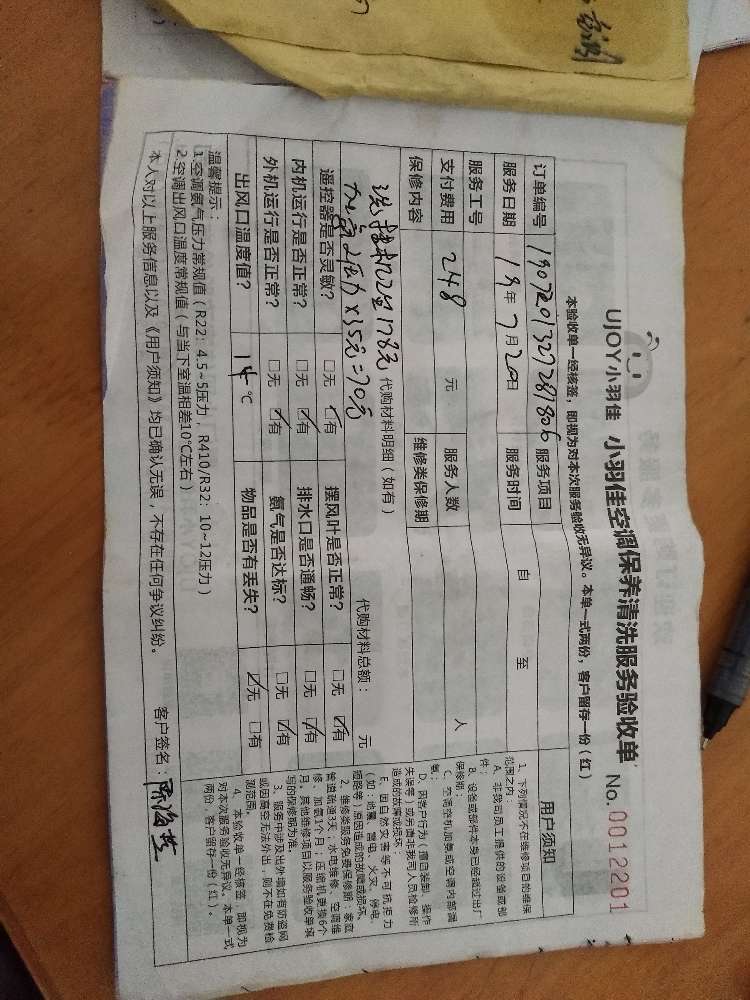 UJOY小羽佳 小羽佳空调保养清洗服务验收单 No.0012201
本验收单一经核签，即视为对本次服务验收无异议。本单一式两份，客户留存一份（红）
订单编号 服务项目
服务日期 19年7月20日 服务时间 自 至
服务工号
支付费用 248 元 服务人数 人
保修内容 维修类保修期
洗挂机2台178元 代购材料明细（如有） 代购材料总额： 元
加氟2压力×35元=70元
遥控器是否灵敏？ □无 ☑有 摆风叶是否正常？ □无 ☑有
内机运行是否正常？ □无 ☑有 排水口是否通畅？ □无 ☑有
外机运行是否正常？ □无 ☑有 氨气是否达标？ □无 ☑有
出风口温度值？ 14℃ 物品是否有丢失？ ☑无 □有
温馨提示：
1.空调氨气压力常规值（R22：4.5~5压力，R410/R32：10~12压力）
2.空调出风口温度常规值（与当下室温相差10℃左右）
本人对以上服务信息以及《用户须知》均已确认无误，不存在任何争议纠纷。 客户签名：
用户须知
1、下列情况不在维修项目的维保
范围之内：
A、非我司员工提供的设备或部
件；
B、设备或部件本身已经超过出厂
保修期；
C、空调空机加氨或空调内部漏
氨；
D、因客户行为（擅自装卸、操作
失误等）或另请非我司人员检修所
造成的故障或损坏；
E、因自然灾害等不可抗拒力
（如：地震、雷电、火灾、停电、
短路等）原因造成的故障或损坏。
2、维修类服务免费保修期：家庭
管道疏通3天；水电维修、空调维
修、加氨1个月；压缩机更换6个
月。其他维修项目以服务验收单填
写的保修期为准。
3、服务中涉及出外墙如有防盗网
或因高空无法外出，则不在免费检
测范围。
4、本验收单一经核签，即视为
对本次服务验收无异议。本单一式
两份，客户留存一份（红）。